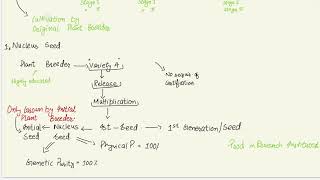 Stage 1
Stage 1
Stage 2
Stage 5
Cultivation by
Original Plant Breeder
1. Nucleus Seed
Plant Breeder → Variety A
Highly educated
No
Certification
Release
Multiplication
Only known by Initial
Plant Breeder
Initial Nucleus 1st - Seed → 1st Generation/Seed
Seed Seed
Physical P. = 100%
Genetic Purity = 100%